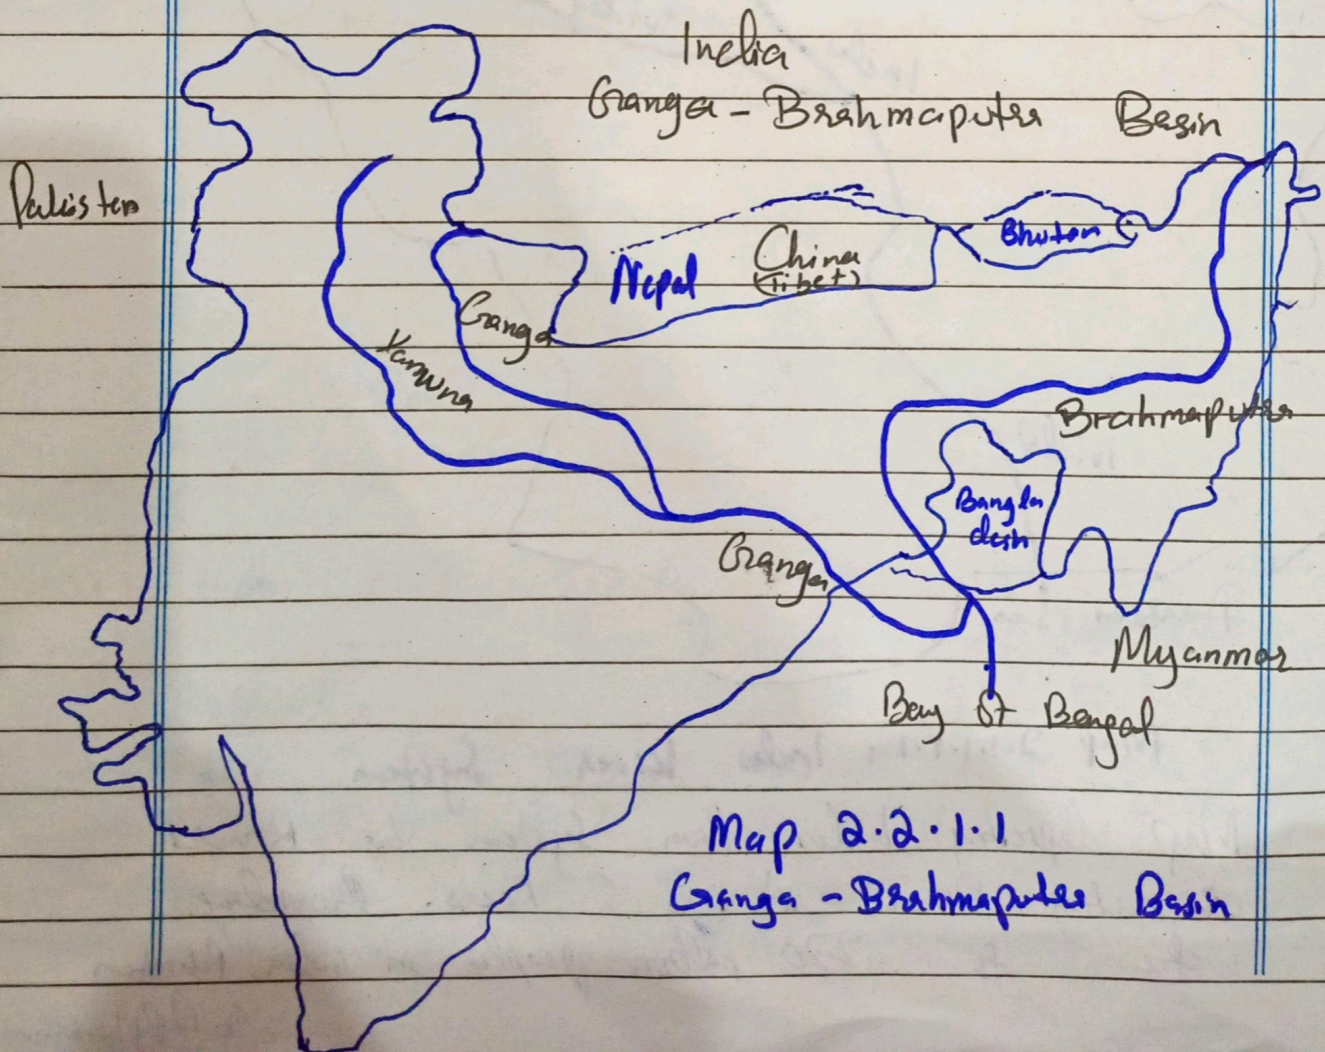 India
Ganga - Brahmaputra Basin
Pakistan
China
(Tibet)
Bhutan
Nepal
Ganga
Yamuna
Brahmaputra
Bangla
desh
Ganga
Myanmar
Bay of Bengal
Map 2.2.1.1
Ganga - Brahmaputra Basin